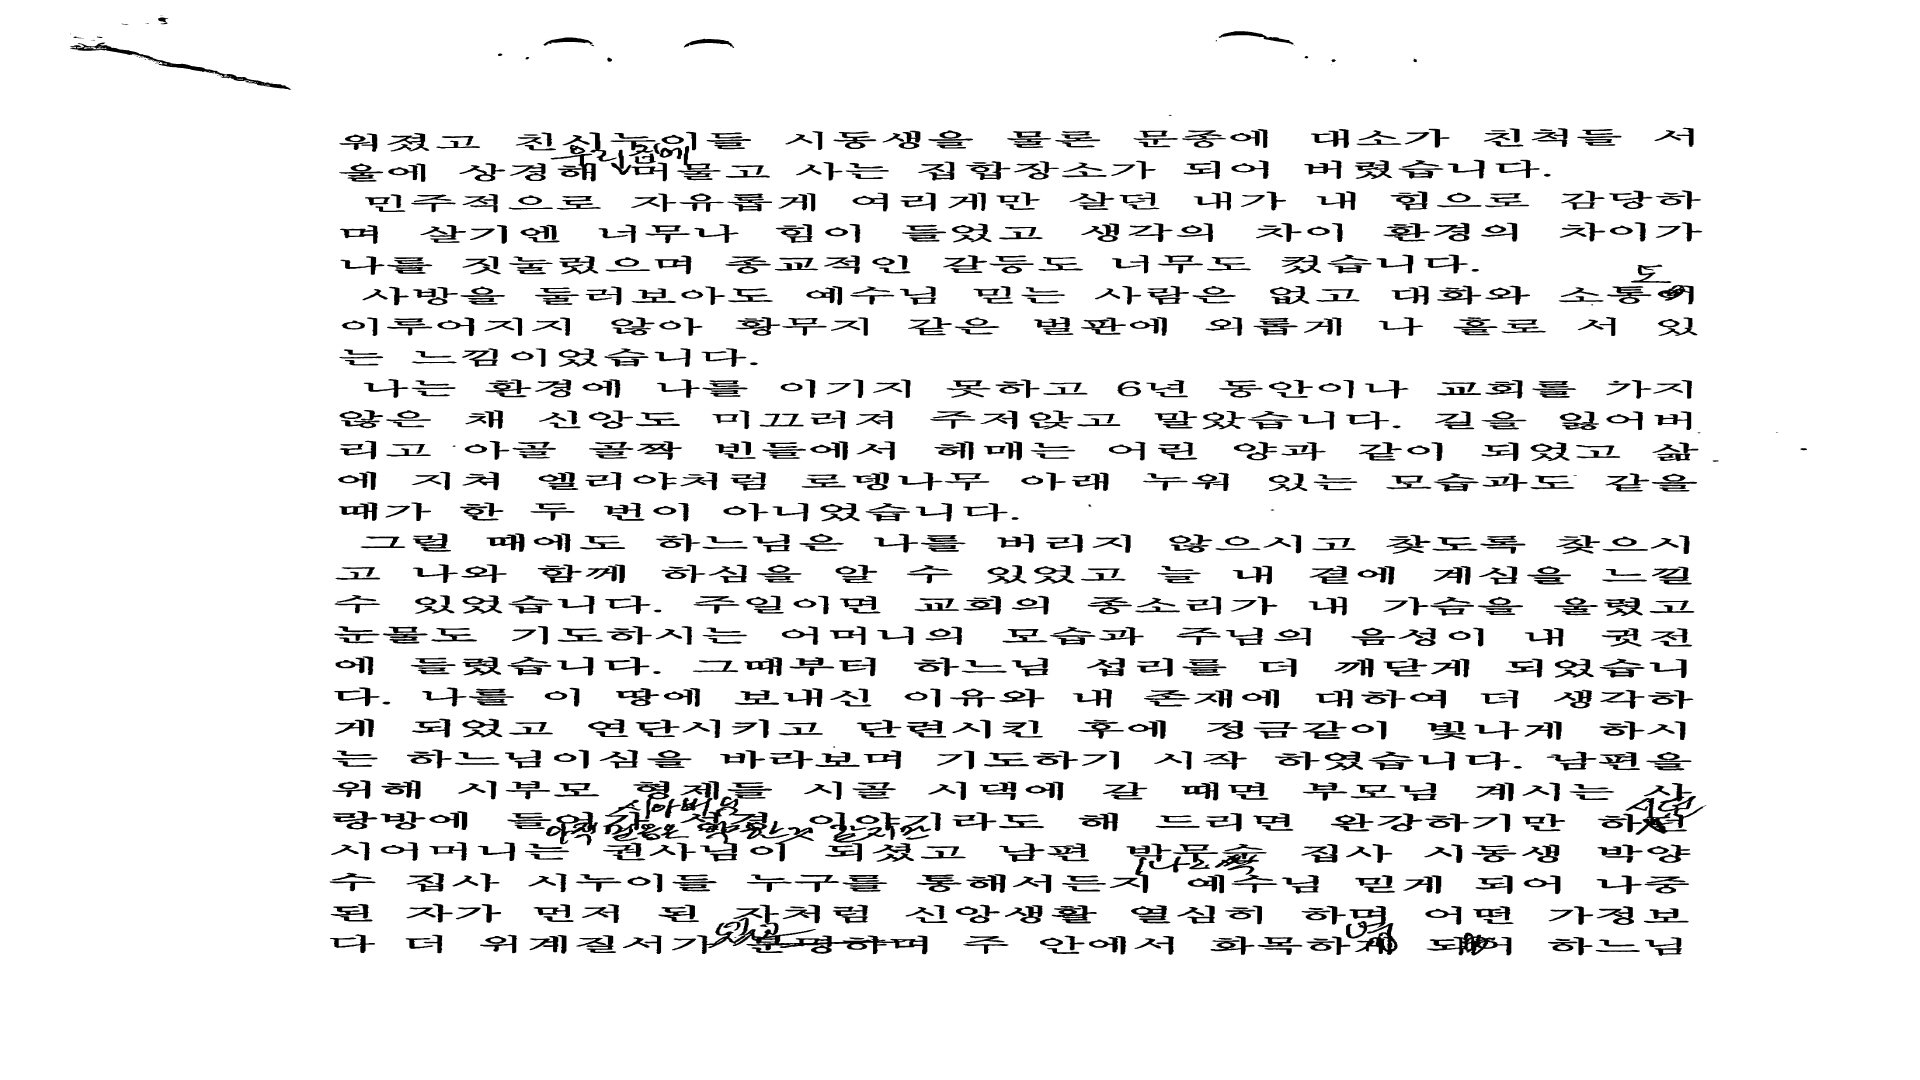 워졌고 친시누이들 시동생을 물론 문종에 대소가 친척들 서
우리집에
울에 상경해 머물고 사는 집합장소가 되어 버렸습니다.
민주적으로 자유롭게 여리게만 살던 내가 내 힘으로 감당하
며 살기엔 너무나 힘이 들었고 생각의 차이 환경의 차이가
나를 짓눌렀으며 종교적인 갈등도 너무도 컸습니다.
도
사방을 둘러보아도 예수님 믿는 사람은 없고 대화와 소통이
이루어지지 않아 황무지 같은 벌판에 외롭게 나 홀로 서 있
는 느낌이었습니다.
나는 환경에 나를 이기지 못하고 6년 동안이나 교회를 가지
않은 채 신앙도 미끄러져 주저앉고 말았습니다. 길을 잃어버
리고 아골 골짝 빈들에서 헤매는 어린 양과 같이 되었고 삶
에 지쳐 엘리야처럼 로뎅나무 아래 누워 있는 모습과도 같을
때가 한 두 번이 아니었습니다.
그럴 때에도 하느님은 나를 버리지 않으시고 찾도록 찾으시
고 나와 함께 하심을 알 수 있었고 늘 내 곁에 계심을 느낄
수 있었습니다. 주일이면 교회의 종소리가 내 가슴을 울렸고
눈물도 기도하시는 어머니의 모습과 주님의 음성이 내 귓전
에 들렸습니다. 그때부터 하느님 섭리를 더 깨닫게 되었습니
다. 나를 이 땅에 보내신 이유와 내 존재에 대하여 더 생각하
게 되었고 연단시키고 단련시킨 후에 정금같이 빛나게 하시
는 하느님이심을 바라보며 기도하기 시작 하였습니다. 남편을
위해 시부모 형제들 시골 시댁에 갈 때면 부모님 계시는 사
시아버님
랑방에 들어가 성경 이야기라도 해 드리면 완강하기만 하던
아직 믿음은
시어머니는 권사님이 되셨고 남편 박무승 집사 시동생 박양
수 집사 시누이들 누구를 통해서든지 예수님 믿게 되어 나중
된 자가 먼저 된 자처럼 신앙생활 열심히 하며 어떤 가정보
다 더 위계질서가 분명하며 주 안에서 화목하게 되어 하느님